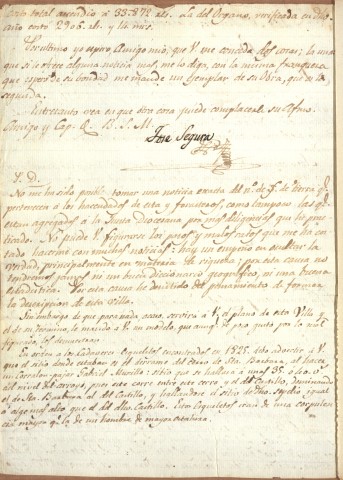 costo total ascendio a 33.872 rls. La del Organo, verificada en
año costo 2906. rl. y 14 mrs.
Por ultimo yo espero Amigo mio, que V me conceda dos cosas; la una
que si se ofrece alguna noticia mas, me lo diga, con la misma franqueza
que espero de su bondad me mande un exemplar de su Obra, qe de
seguida.
Entretanto vea en que otra cosa puede complacerle su Afmo.
Amigo y Cap. Q. B. S. M.
José Segura
P. D.
No me ha sido posible tomar una noticia exacta del n.º de f.s de tierra qe
pertenecen a los hacendados de esta y forasteros, como tampoco las qe
estan agregadas a la Junta Diocesana por mas diligencias que he prac
ticado. No puede V figurarse los pasos y malos ratos que me ha cos
tado hacerme con muchas noticias: hay un empeño en ocultar la
verdad, principalmente en materia de riqueza; por esta causa no
tendremos jamas ni un buen diccionario geografico, ni una buena
estadistica. Por esta causa he desistido del pensamiento de formar
la descripcion de esta Villa.
Sin embargo de que para nada acaso, servira a V. el plano de esta Villa y
el de su termino, le mando a V. un modelo, que aunqe
figurado, los demuestran.
En orden a los Cadaveres Esqueletos encontrados en 1825. debo adv
que el sitio donde estaban es el terreno del Cerro de Sta. Barbara, al hacer
un Corralon-pajar Gabriel Murillo: sitio que se hallara a unos 35. o 40. vs.
del nivel del arroyo, pues este corre entre este cerro, y el del Castillo, dominando
el de Sta. Barbara al del Castillo, y hallandose el sitio de dhos. igual
o algo mas alto que el del dho. Castillo. Estos Esqueletos eran de una corpulen
cia mayor qe. la de un hombre de mayor estatura.